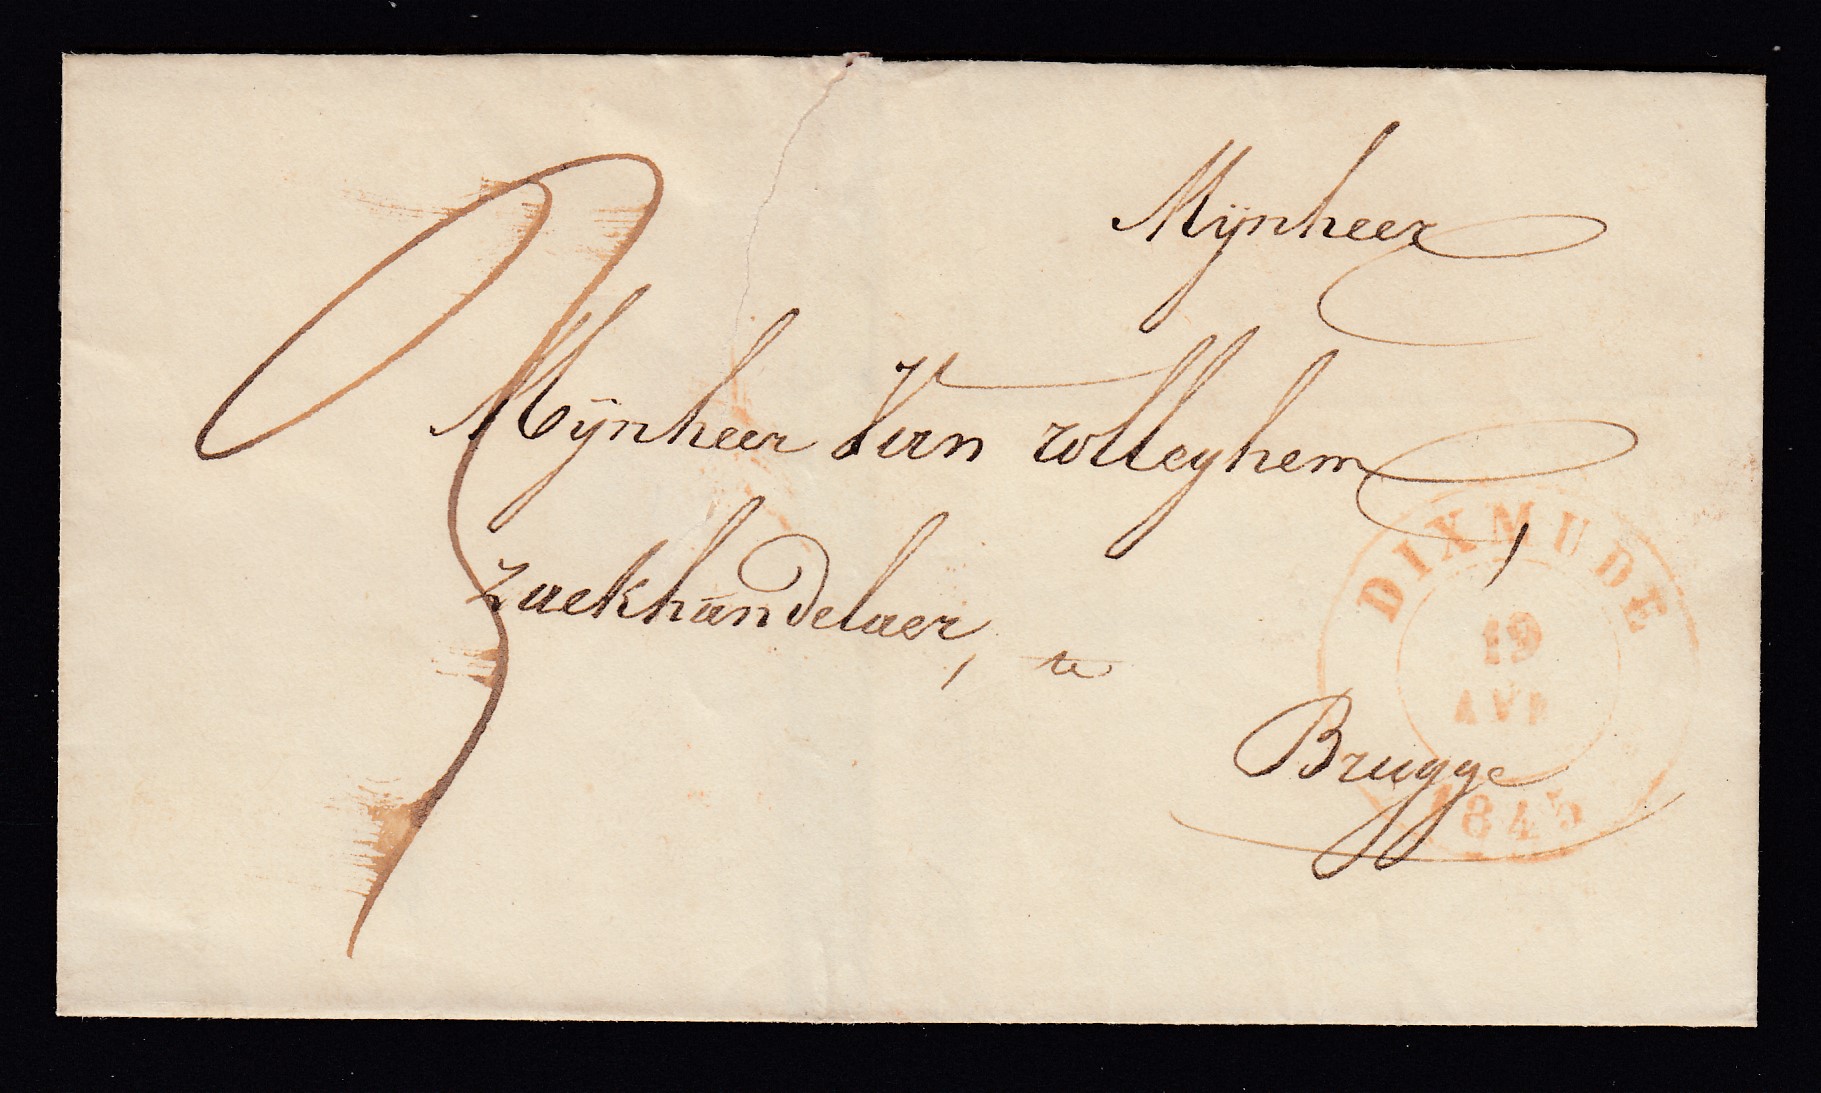 Mÿnheer
Mÿnheer Van rolleghem,
zaekhandelaer, te
Brugge
DIXMUDE
19
AVR
1845
3